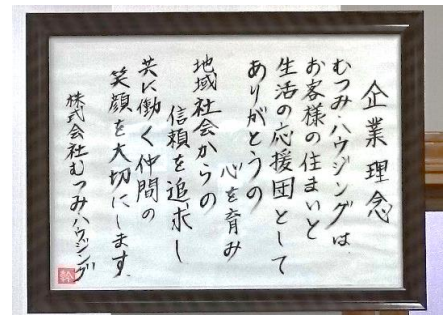 企業理念
むつみハウジングは
お客様の住まいと
生活の応援団として
ありがとうの
心を育み
地域社会からの
信頼を追求し
共に働く仲間の
笑顔を大切にします。
株式会社むつみハウジング